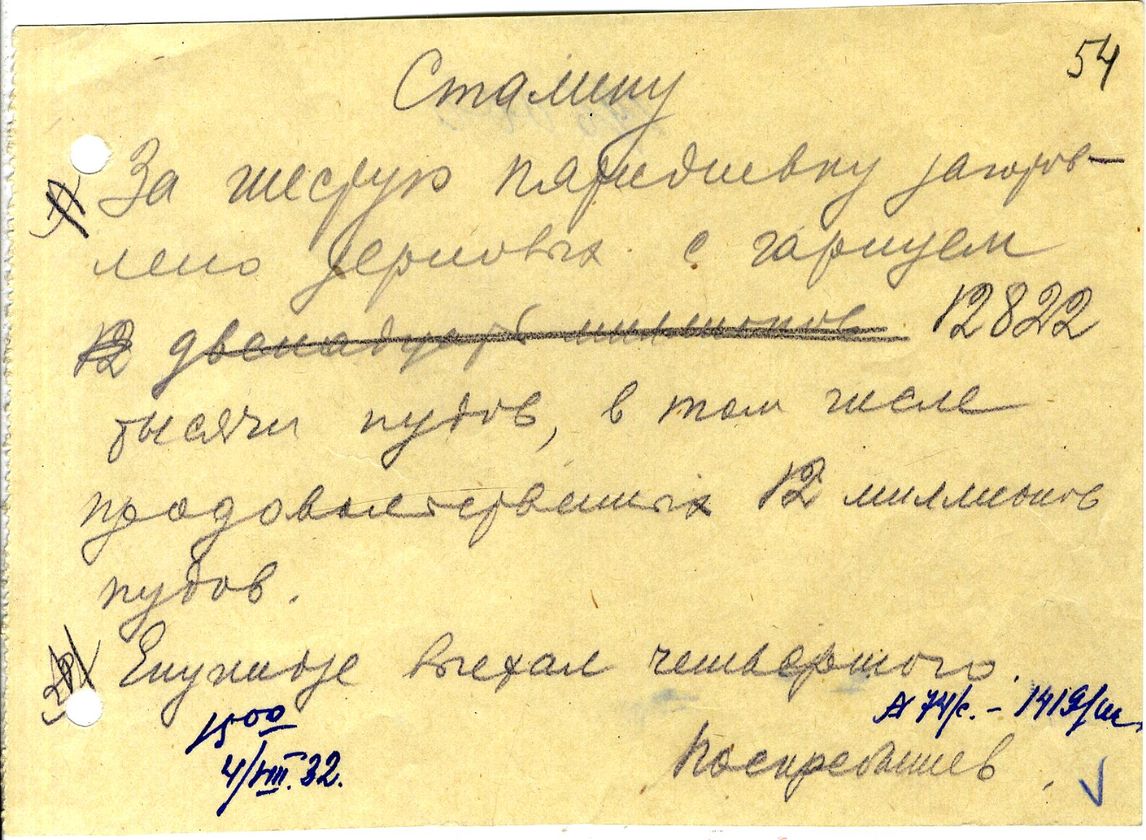 54
Сталину
За шестую пятидневку заготов-
лено зерновых с гарнцем
12 двенадцать миллионов 12822
тысячи пудов, в том числе
продовольственных 12 миллионов
пудов.
Енукидзе выехал четвертого.
15 00
4/VIII.32.
№ 74/с. – 1419/ш.
Поскребышев